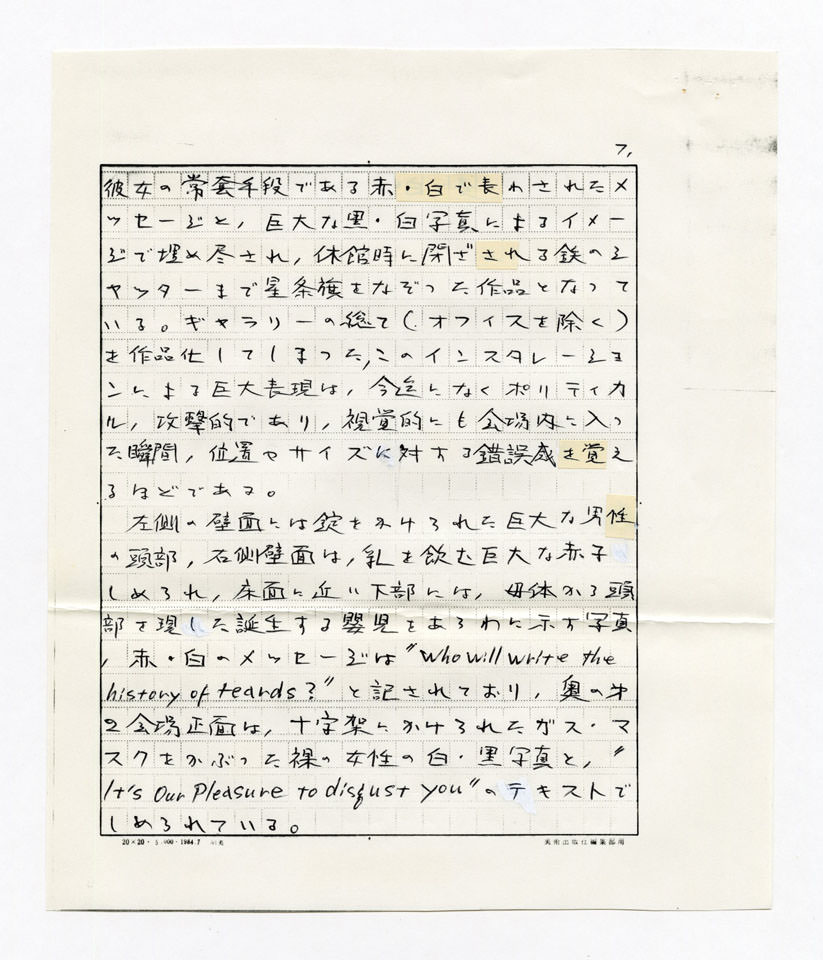 7,
彼女の常套手段である赤・白で表わされたメ
ッセージと,巨大な黒・白写真によるイメー
ジで埋め尽され,休館時に閉ざされる鉄のシ
ャッターまで星条旗をなぞった作品となって
いる。ギャラリーの総て(オフィスを除く)
を作品化してしまった,このインスタレーショ
ンによる巨大表現は,今迄になくポリティカ
ル,攻撃的であり,視覚的にも会場内に入っ
た瞬間,位置やサイズに対する錯誤感を覚え
るほどである。
左側の壁面には錠をかけられた巨大な男性
の頭部,右側壁面は,乳を飲む巨大な赤子
しめられ,床面に近い下部には,母体から頭
部を現した誕生する嬰児をあらわに示す写真
,赤・白のメッセージは"Who will write the
history of teards?"と記されており,奥の第
2会場正面は,十字架にかけられたガス・マ
スクをかぶった裸の女性の白・黒写真と,"
It's Our Pleasure to disgust you"のテキストで
しめられている。
20×20・5,000・1984.7
美術出版社編集部用